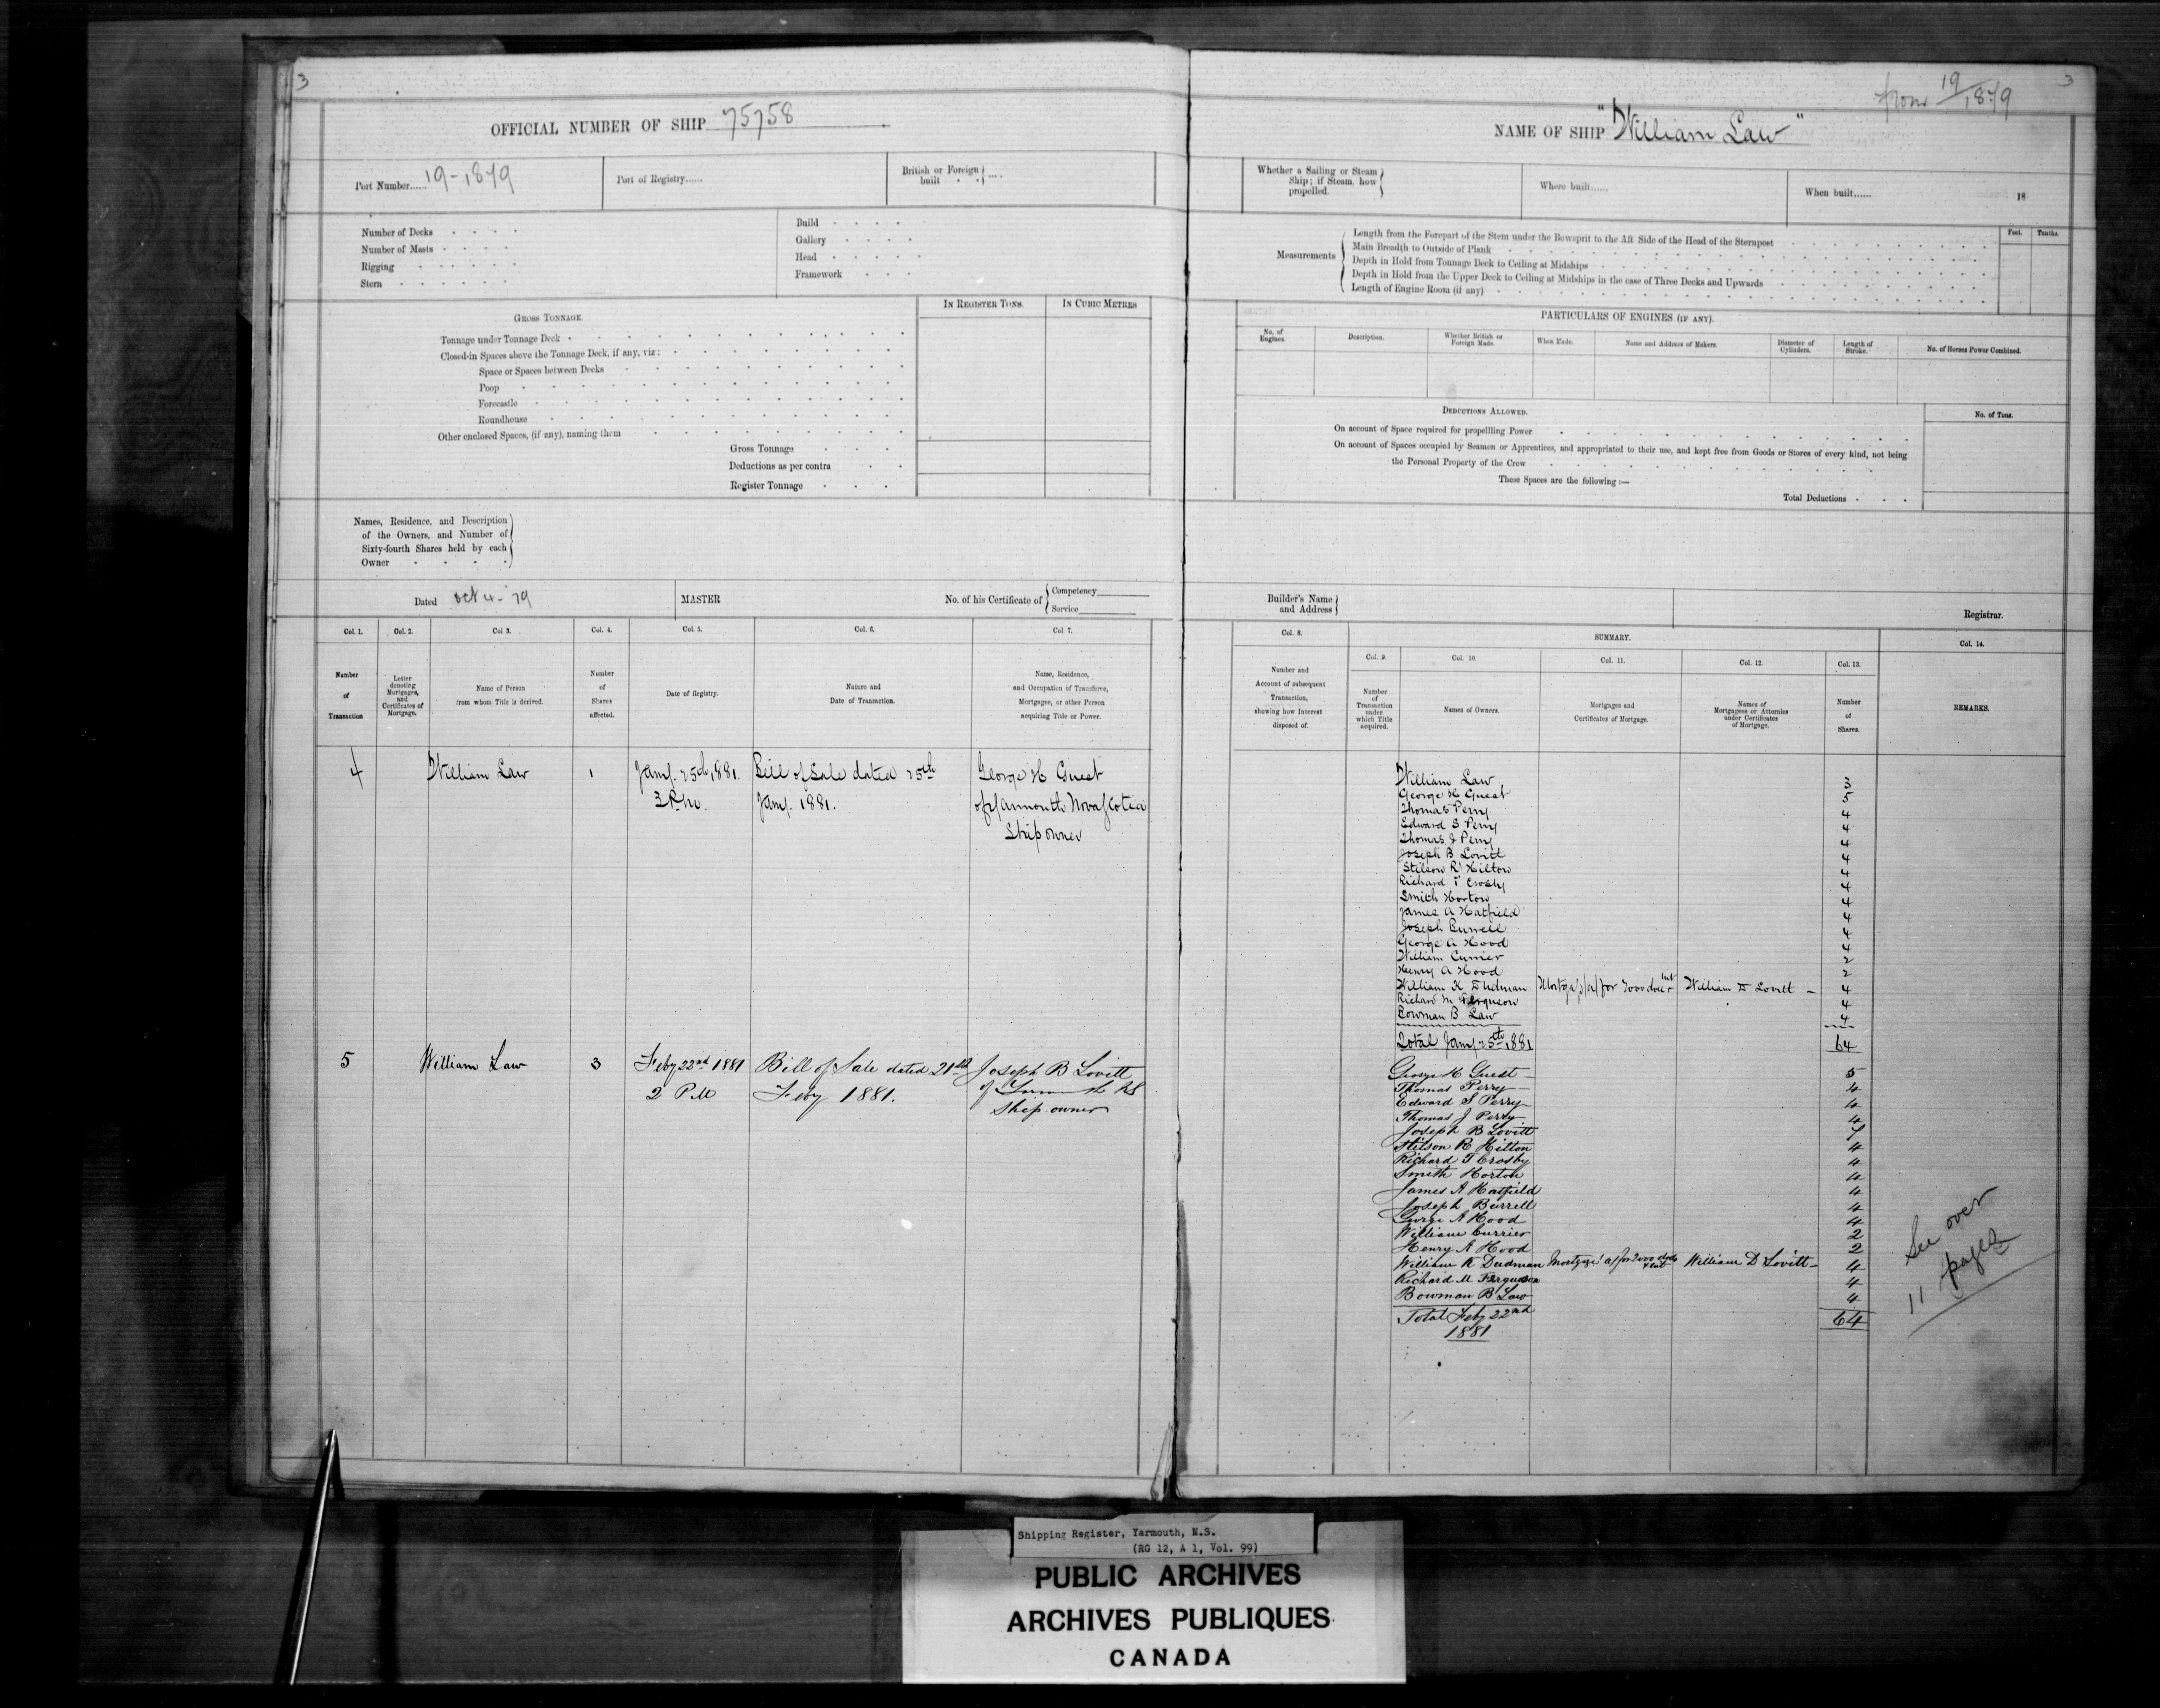 3
OFFICIAL NUMBER OF SHIP 75758
Port Number...... 19-1879
Port of Registry......
British or Foreign
built
Number of Decks
Number of Masts
Rigging
Stern
Build
Gallery
Head
Framework
GROSS TONNAGE.
IN REGISTER TONS.
IN CUBIC METRES
Tonnage under Tonnage Deck
Closed-in Spaces above the Tonnage Deck, if any, viz:
Space or Spaces between Decks
Poop
Forecastle
Roundhouse
Other enclosed Spaces, (if any), naming them
Gross Tonnage
Deductions as per contra
Register Tonnage
Names, Residence, and Description
of the Owners, and Number of
Sixty-fourth Shares held by each
Owner
Dated Oct 4-79
MASTER
No. of his Certificate of
Competency
Service
Col. 1.
Col. 2.
Col 3.
Col. 4.
Col. 5.
Col. 6.
Col. 7.
Number
of
Transaction
Letter
denoting
Mortgages,
and
Certificates of
Mortgage.
Name of Person
from whom Title is derived.
Number
of
Shares
affected.
Date of Registry.
Nature and
Date of Transaction.
Name, Residence,
and Occupation of Transferee,
Mortgagee, or other Person
acquiring Title or Power.
4 William Law 1 Jany. 25th 1881. Bill of Sale dated 25th George H Guest
3 P.m. Jany. 1881. of Yarmouth Nova Scotia
Ship owner
5 William Law 3 Feby 22nd 1881 Bill of Sale dated 21st Joseph B Lovitt
2 PM Feby 1881. of Yarmouth NS
Ship owner
3
from 19/1879
NAME OF SHIP "William Law"
Whether a Sailing or Steam
Ship; if Steam, how
propelled.
Where built......
When built......
18
Measurements
Length from the Forepart of the Stem under the Bowsprit to the Aft Side of the Head of the Sternpost
Main Breadth to Outside of Plank
Depth in Hold from Tonnage Deck to Ceiling at Midships
Depth in Hold from the Upper Deck to Ceiling at Midships in the case of Three Decks and Upwards
Length of Engine Room (if any)
Feet.
Tenths.
PARTICULARS OF ENGINES (IF ANY).
No. of
Engines.
Description.
Whether British or
Foreign Made.
When Made.
Name and Address of Makers.
Diameter of
Cylinders.
Length of
Stroke.
No. of Horses Power Combined.
DEDUCTIONS ALLOWED.
No. of Tons.
On account of Space required for propelling Power
On account of Spaces occupied by Seamen or Apprentices, and appropriated to their use, and kept free from Goods or Stores of every kind, not being
the Personal Property of the Crew
These Spaces are the following:—
Total Deductions
Builder's Name
and Address
Registrar.
Col. 8.
SUMMARY.
Col. 14.
Col. 9.
Col. 10.
Col. 11.
Col. 12.
Col. 13.
Number and
Account of subsequent
Transaction,
showing how Interest
disposed of.
Number
of
Transaction
under
which Title
acquired.
Names of Owners.
Mortgages and
Certificates of Mortgage.
Names of
Mortgagees or Attornies
under Certificates
of Mortgage.
Number
of
Shares.
REMARKS.
William Law 3
George H Guest 5
Thomas Perry 4
Edward S Perry 4
Thomas J Perry 4
Joseph B Lovitt 4
Stilson R Hilton 4
Richard T Crosby 4
Smith Horton 4
James A Hatfield 4
Joseph Burrell 4
George A Hood 4
William Currier 2
Henry A Hood 2
William K Dudman William D Lovitt 4
Richard M Ferguson 4
Bowman B Law 4
Total Jany 25th 1881 64
George H Guest 5
Thomas Perry 4
Edward S Perry 4
Thomas J Perry 4
Joseph B Lovitt 7
Stilson R Hilton 4
Richard T Crosby 4
Smith Horton 4
James A Hatfield 4
Joseph Burrell 4
George A Hood 4
William Currier 2
Henry A Hood 2
William K Dudman Mortgage William D Lovitt 4
Richard M Ferguson 4
Bowman B Law 4
Total Feby 22nd 64
1881
See over
11 pages
Shipping Register, Yarmouth, N.S.
(RG 12, A 1, Vol. 99)
PUBLIC ARCHIVES
ARCHIVES PUBLIQUES
CANADA